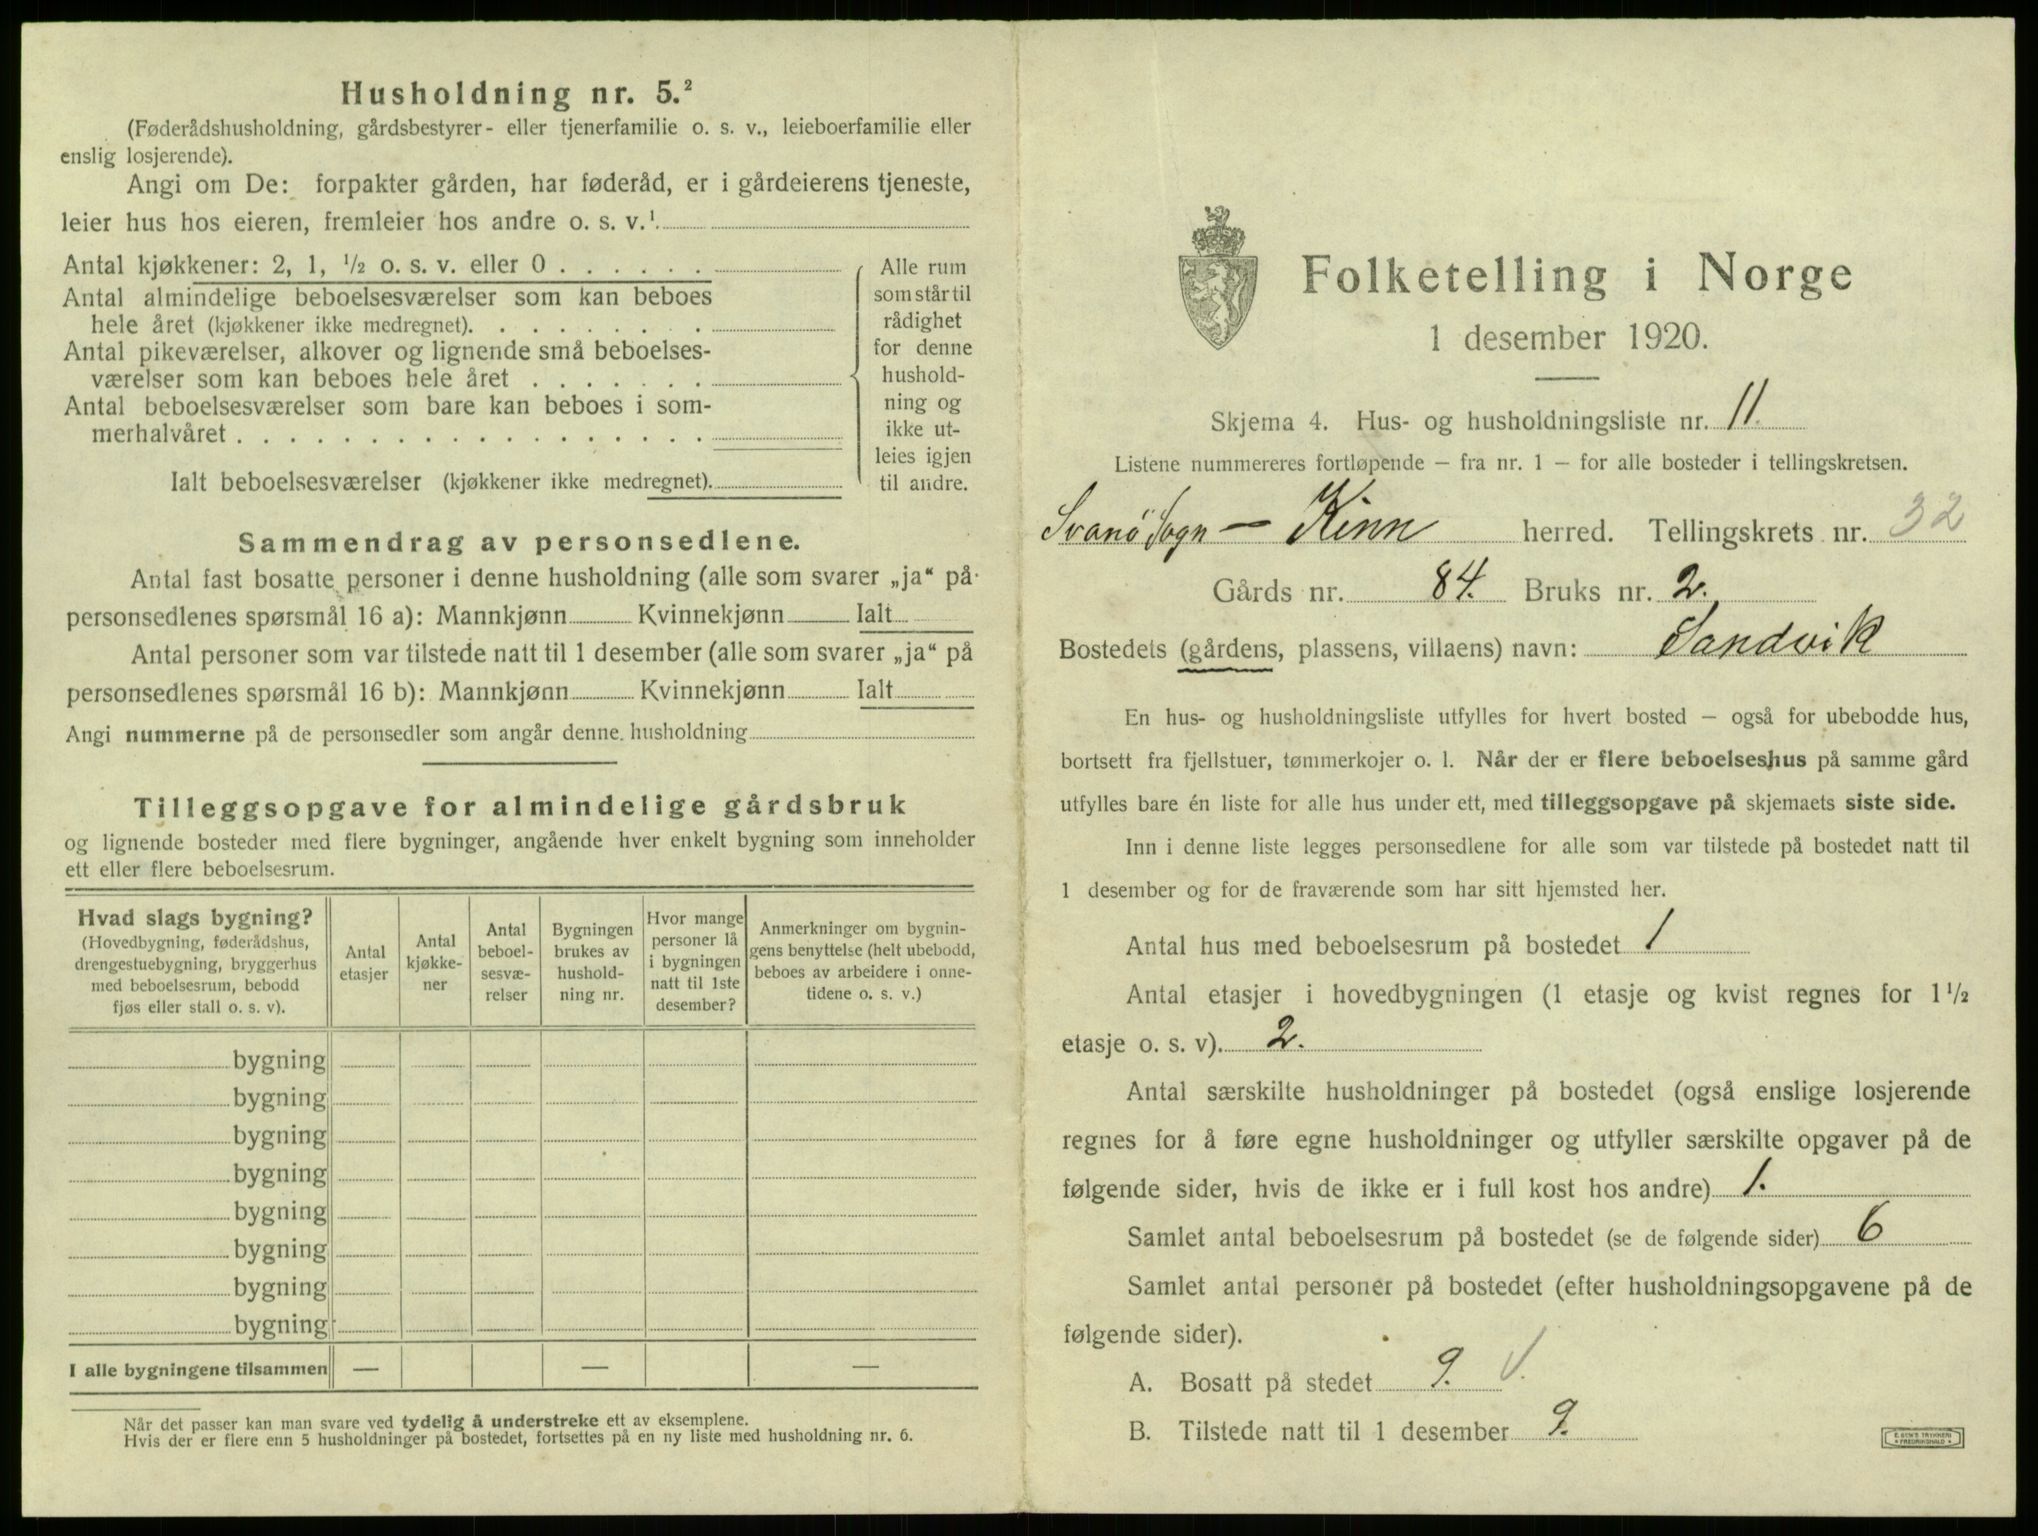 Husholdning nr. 5.²
(Føderådshusholdning, gårdsbestyrer- eller tjenerfamilie o. s. v., leieboerfamilie eller
enslig losjerende).
Angi om De: forpakter gården, har føderåd, er i gårdeierens tjeneste,
leier hus hos eieren, fremleier hos andre o. s. v.¹
Antal kjøkkener: 2, 1, ½ o. s. v. eller 0 . . . . . .
Antal almindelige beboelsesværelser som kan beboes
hele året (kjøkkener ikke medregnet). . . . . . . . .
Antal pikeværelser, alkover og lignende små beboelses-
værelser som kan beboes hele året . . . . . . .
Antal beboelsesværelser som bare kan beboes i som-
merhalvåret . . . . . . . . . . . . . . . . . .
Ialt beboelsesværelser (kjøkkener ikke medregnet).
Alle rum
som står til
rådighet
for denne
hushold-
ning og
ikke ut-
leies igjen
til andre.
Sammendrag av personsedlene.
Antal fast bosatte personer i denne husholdning (alle som svarer „ja“ på
personsedlenes spørsmål 16 a): Mannkjønn Kvinnekjønn Ialt
Antal personer som var tilstede natt til 1 desember (alle som svarer „ja“ på
personsedlenes spørsmål 16 b): Mannkjønn Kvinnekjønn Ialt
Angi nummerne på de personsedler som angår denne husholdning
Tilleggsopgave for almindelige gårdsbruk
og lignende bosteder med flere bygninger, angående hver enkelt bygning som inneholder
ett eller flere beboelsesrum.
Hvad slags bygning?
(Hovedbygning, føderådshus,
drengestuebygning, bryggerhus
med beboelsesrum, bebodd
fjøs eller stall o. s. v).
Antal
etasjer
Antal
kjøkke-
ner
Antal
beboel-
sesvæ-
relser
Bygningen
brukes av
hushold-
ning nr.
Hvor mange
personer lå
i bygningen
natt til 1ste
desember?
Anmerkninger om bygnin-
gens benyttelse (helt ubebodd,
beboes av arbeidere i onne-
tidene o. s. v.)
bygning
bygning
bygning
bygning
bygning
bygning
bygning
bygning
I alle bygningene tilsammen — — —
Når det passer kan man svare ved tydelig å understreke ett av eksemplene.
Hvis der er flere enn 5 husholdninger på bostedet, fortsettes på en ny liste med husholdning nr. 6.
Folketelling i Norge
1 desember 1920.
Skjema 4. Hus- og husholdningsliste nr. 11.
Listene nummereres fortløpende – fra nr. 1 – for alle bosteder i tellingskretsen.
Svanö Sogn — Kinn herred. Tellingskrets nr. 32
Gårds nr. 84. Bruks nr. 2.
Bostedets (gårdens, plassens, villaens) navn: Sandvik
En hus- og husholdningsliste utfylles for hvert bosted – også for ubebodde hus,
bortsett fra fjellstuer, tømmerkojer o. l. Når der er flere beboelseshus på samme gård
utfylles bare én liste for alle hus under ett, med tilleggsopgave på skjemaets siste side.
Inn i denne liste legges personsedlene for alle som var tilstede på bostedet natt til
1 desember og for de fraværende som har sitt hjemsted her.
Antal hus med beboelsesrum på bostedet 1
Antal etasjer i hovedbygningen (1 etasje og kvist regnes for 1½
etasje o. s. v). 2.
Antal særskilte husholdninger på bostedet (også enslige losjerende
regnes for å føre egne husholdninger og utfyller særskilte opgaver på de
følgende sider, hvis de ikke er i full kost hos andre) 1.
Samlet antal beboelsesrum på bostedet (se de følgende sider) 6
Samlet antal personer på bostedet (efter husholdningsopgavene på de
følgende sider).
A. Bosatt på stedet 9. V.
B. Tilstede natt til 1 desember 9.
E. SEM'S TRYKKERI
FREDRIKSHALD